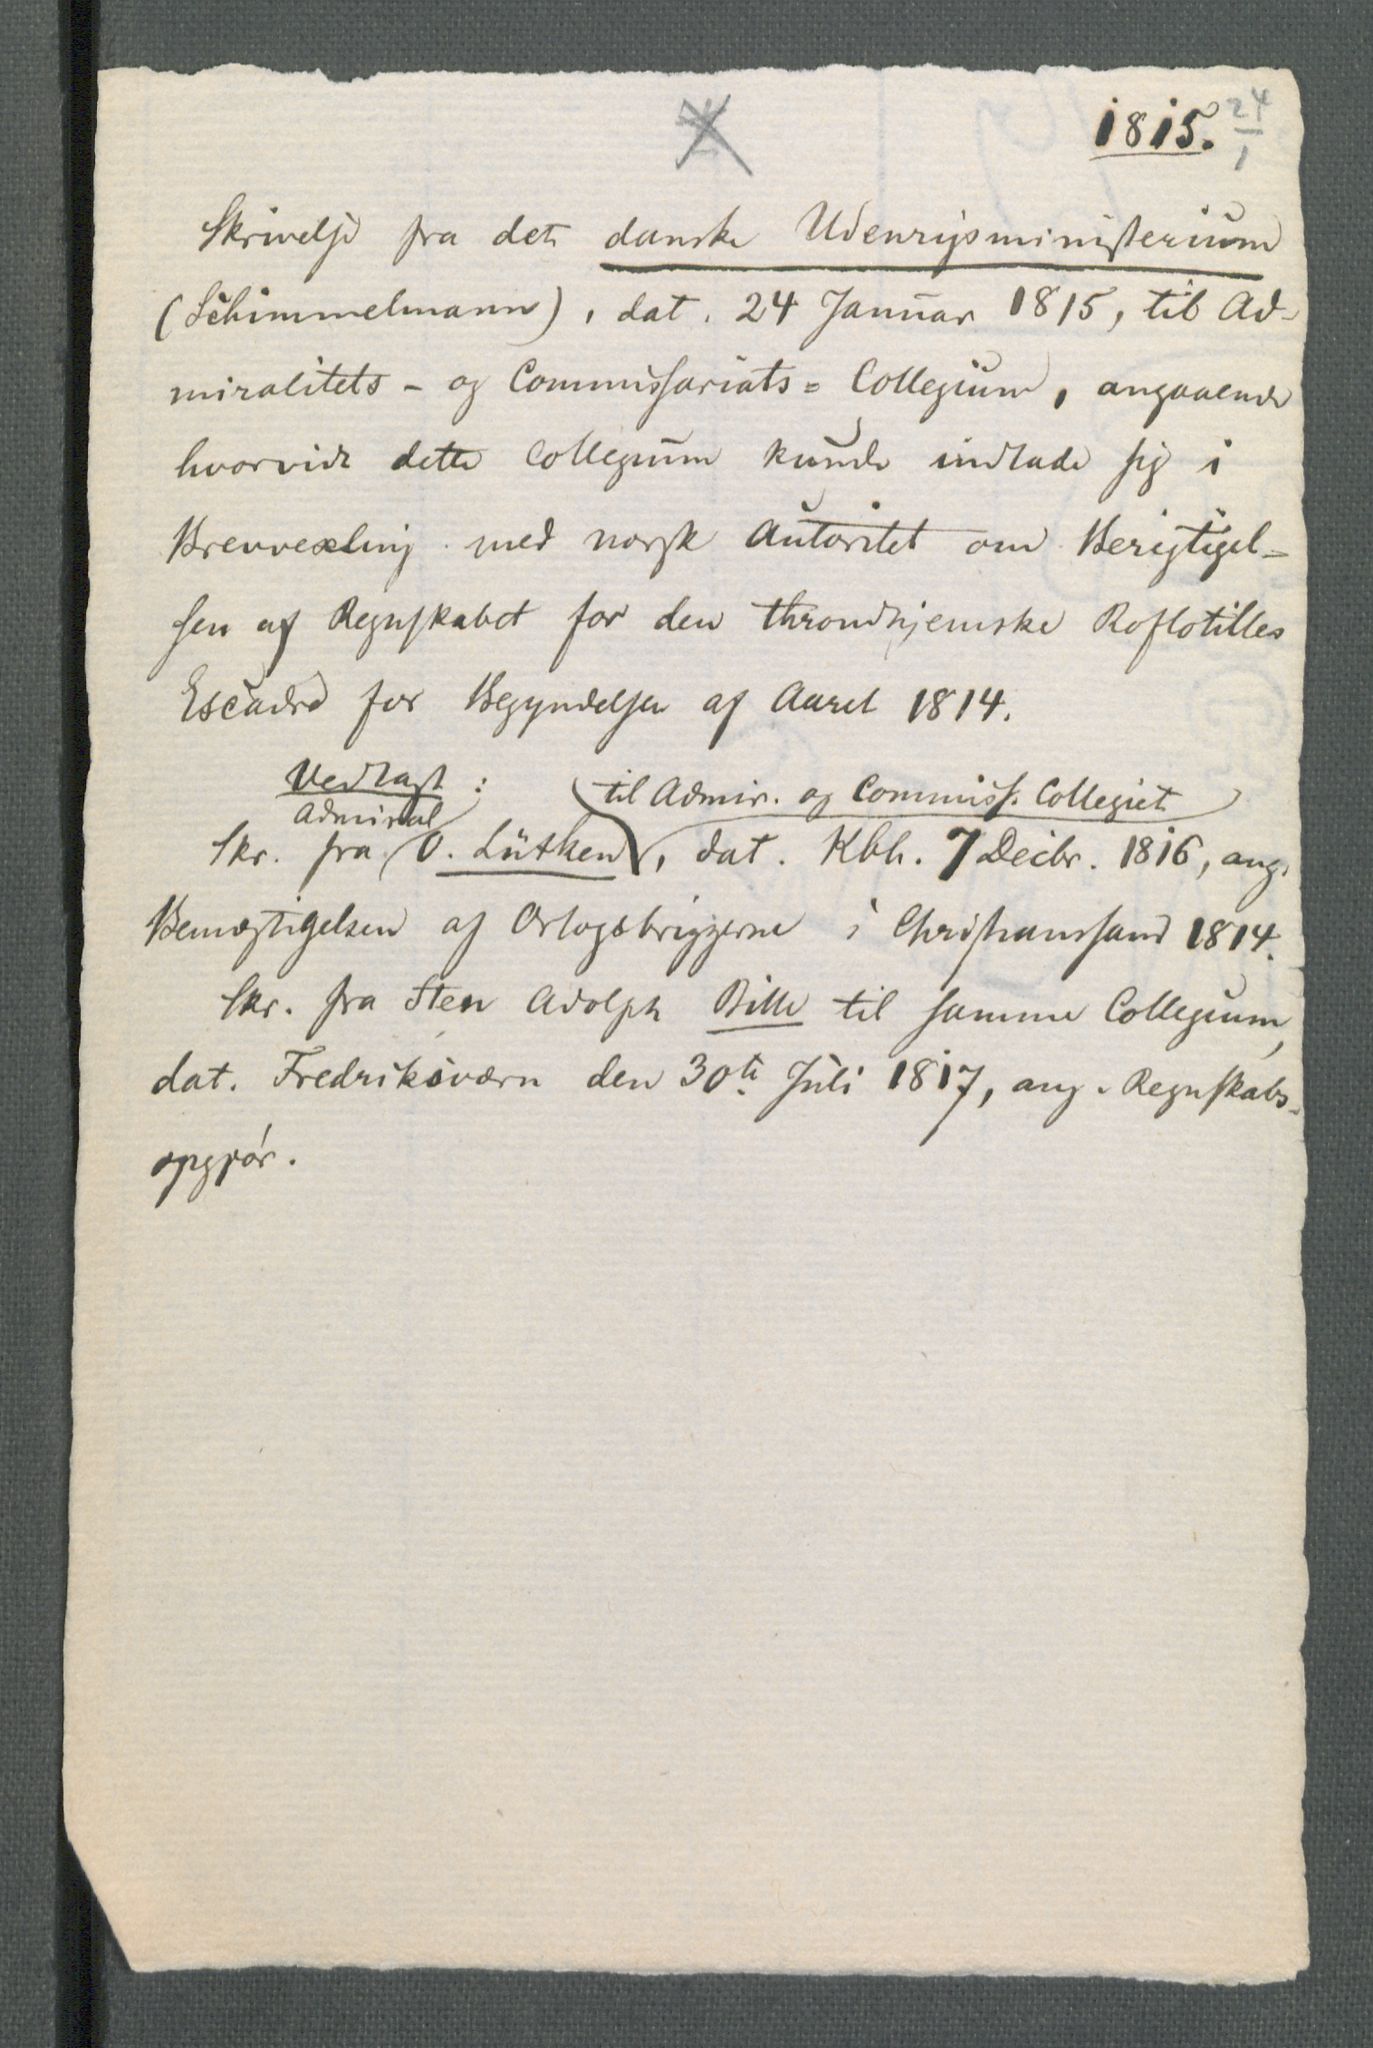 1815. 24/1
Skrivelse fra det danske Udenrigsministerium
(Schimmelmann), dat. 24 Januar 1815, til Ad-
miralitets- og Commissariats= Collegium, angaaende
hvorvidt dette Collegium kunde indlade sig i
Brevvexling med norsk Autoritet om Berigtigel-
sen af Regnskabet for den throndhjemske Roflotilles
Escadre for Begyndelsen af Aaret 1814.
Vedlagt: til Admir. og Commiss. Collegiet
Admiral
Skr. fra O. Lütken, dat. Kbh. 7 Decbr. 1816, ang.
Bemægtigelsen af Orlogsbriggerne i Christianssand 1814.
Skr. fra Sten Adolph Bille til samme Collegium,
dat. Fredriksværn den 30te Juli 1817, ang. Regnskabs-
opgjør.